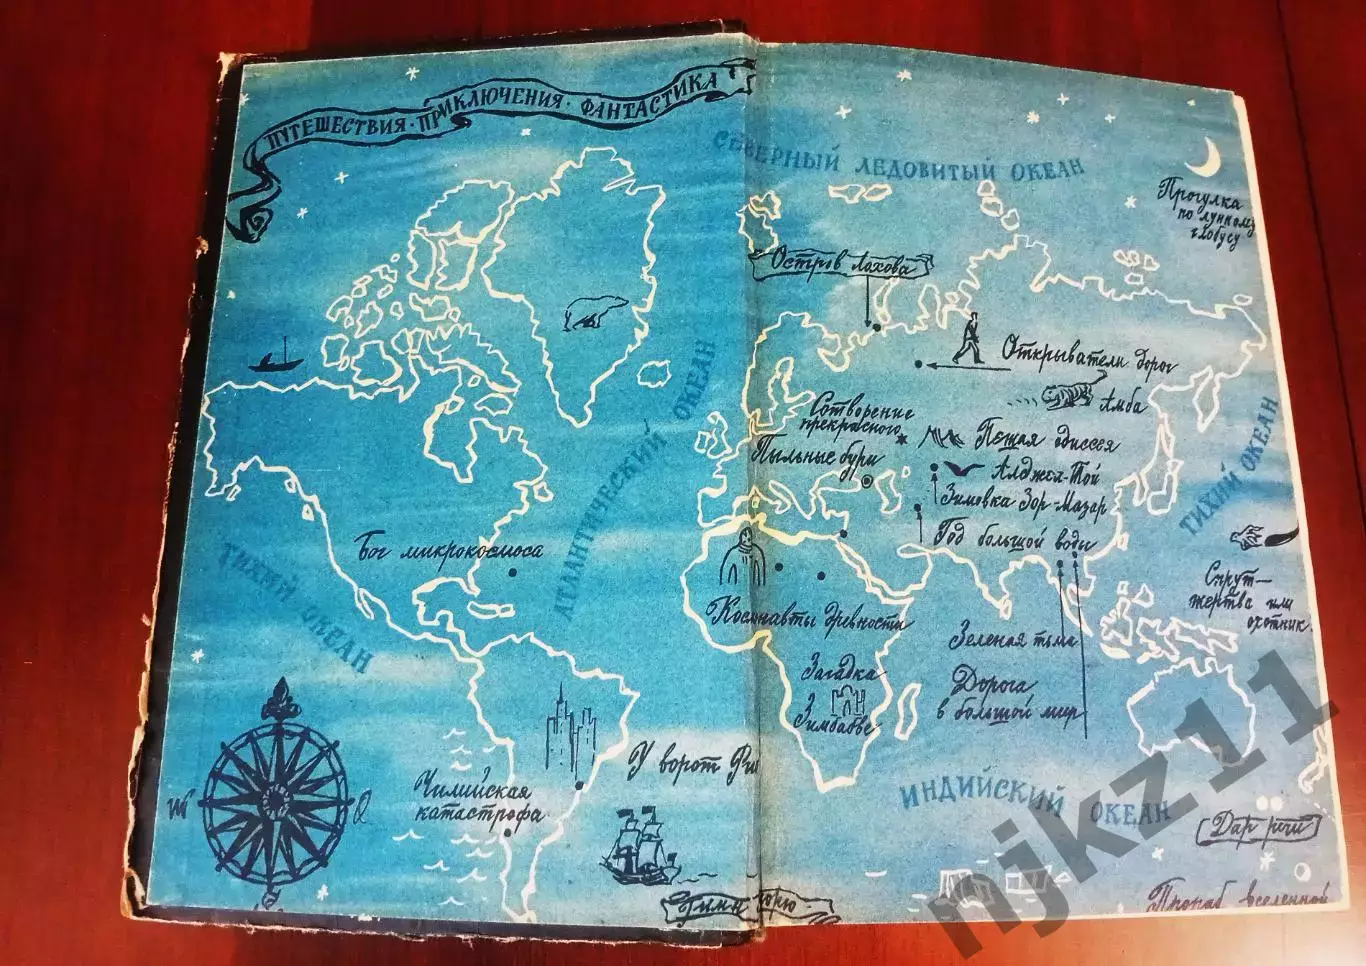 ПУТЕШЕСТВИЯ · ПРИКЛЮЧЕНИЯ · ФАНТАСТИКА
СЕВЕРНЫЙ ЛЕДОВИТЫЙ ОКЕАН
Прогулка
по лунному
глобусу
Остров Ляхова
Открыватели дорог
Амба
Сотворение
прекрасного
Пешая одиссея
Пыльные бури
Алджея-Той
Зимовка Зор-Мазар
Год большой воды
ТИХИЙ ОКЕАН
АТЛАНТИЧЕСКИЙ ОКЕАН
Бог микрокосмоса
ТИХИЙ ОКЕАН
Спрут—
жертва или
охотник
Космонавты древности
Зеленая тьма
Загадка
Зимбабве
Дорога
в большой мир
У ворот Ри
Чилийская
катастрофа
ИНДИЙСКИЙ ОКЕАН
Дар речи
Гимн морю
Прораб вселенной
njkz11